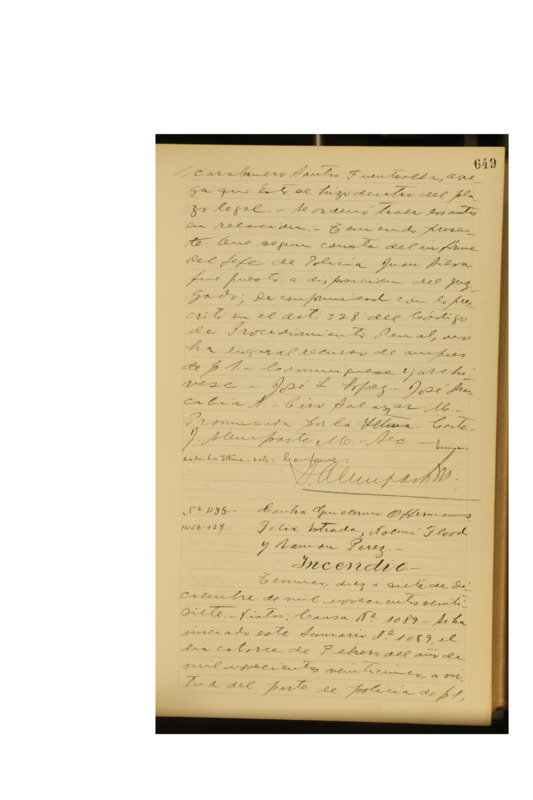 649
carabinero Santos Fuentealba, agre-
ga que esto se hizo dentro del pla
zo legal.- Se ordenó traer los autos
en relación.- Teniendo presen-
te: Que segun consta del informe
del Jefe de Policía Juan Silva
fué puesto a disposicion del Juz-
gado, de conformidad con lo pres
crito en el art. 328 del Código
de Procedimiento Penal, no
ha lugar al recurso de amparo
de f 1.- Comuníquese y archí-
vese.- José L. Lopez.- José
Ciro Salazar M.-
Pronunciada por la Iltma. Corte.
J. Almeparte M.- Sec.-
la Iltma. vale. Conforme.-
Nº 1135.- Contra Guillermo Offermanns
Felix Estrada, Noemi Flood
y Ramon Perez.-
Incendio.-
Temuco, diez i siete de Di
ciembre de mil novecientos veinti-
siete.- Vistos: Causa Nº 1089.- Se ha
iniciado este Sumario Nº 1089, el
dia catorce de Febrero del año de
mil novecientos veinticinco, a vir
tud del parte de policía de f 1,